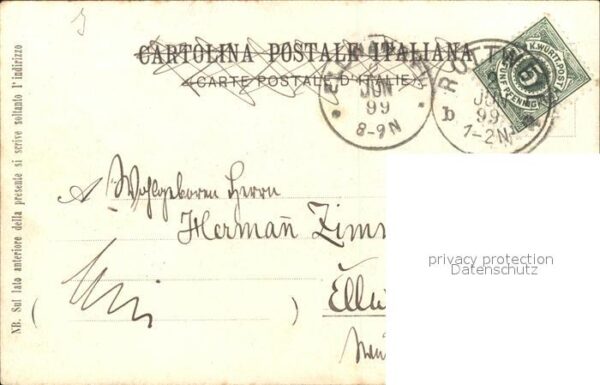 CARTOLINA POSTALE ITALIANA
(CARTE POSTALE D'ITALIE)
JUN
99
8-9N
ROTTW
b
JUN
99
1-2N
K.WÜRTT.POST
5
PFENNIG
NB. Sul lato anteriore della presente si scrive soltanto l'indirizzo
A Wohlgeboren Herrn
Hermañ Zim
Ellw
privacy protection
Datenschutz